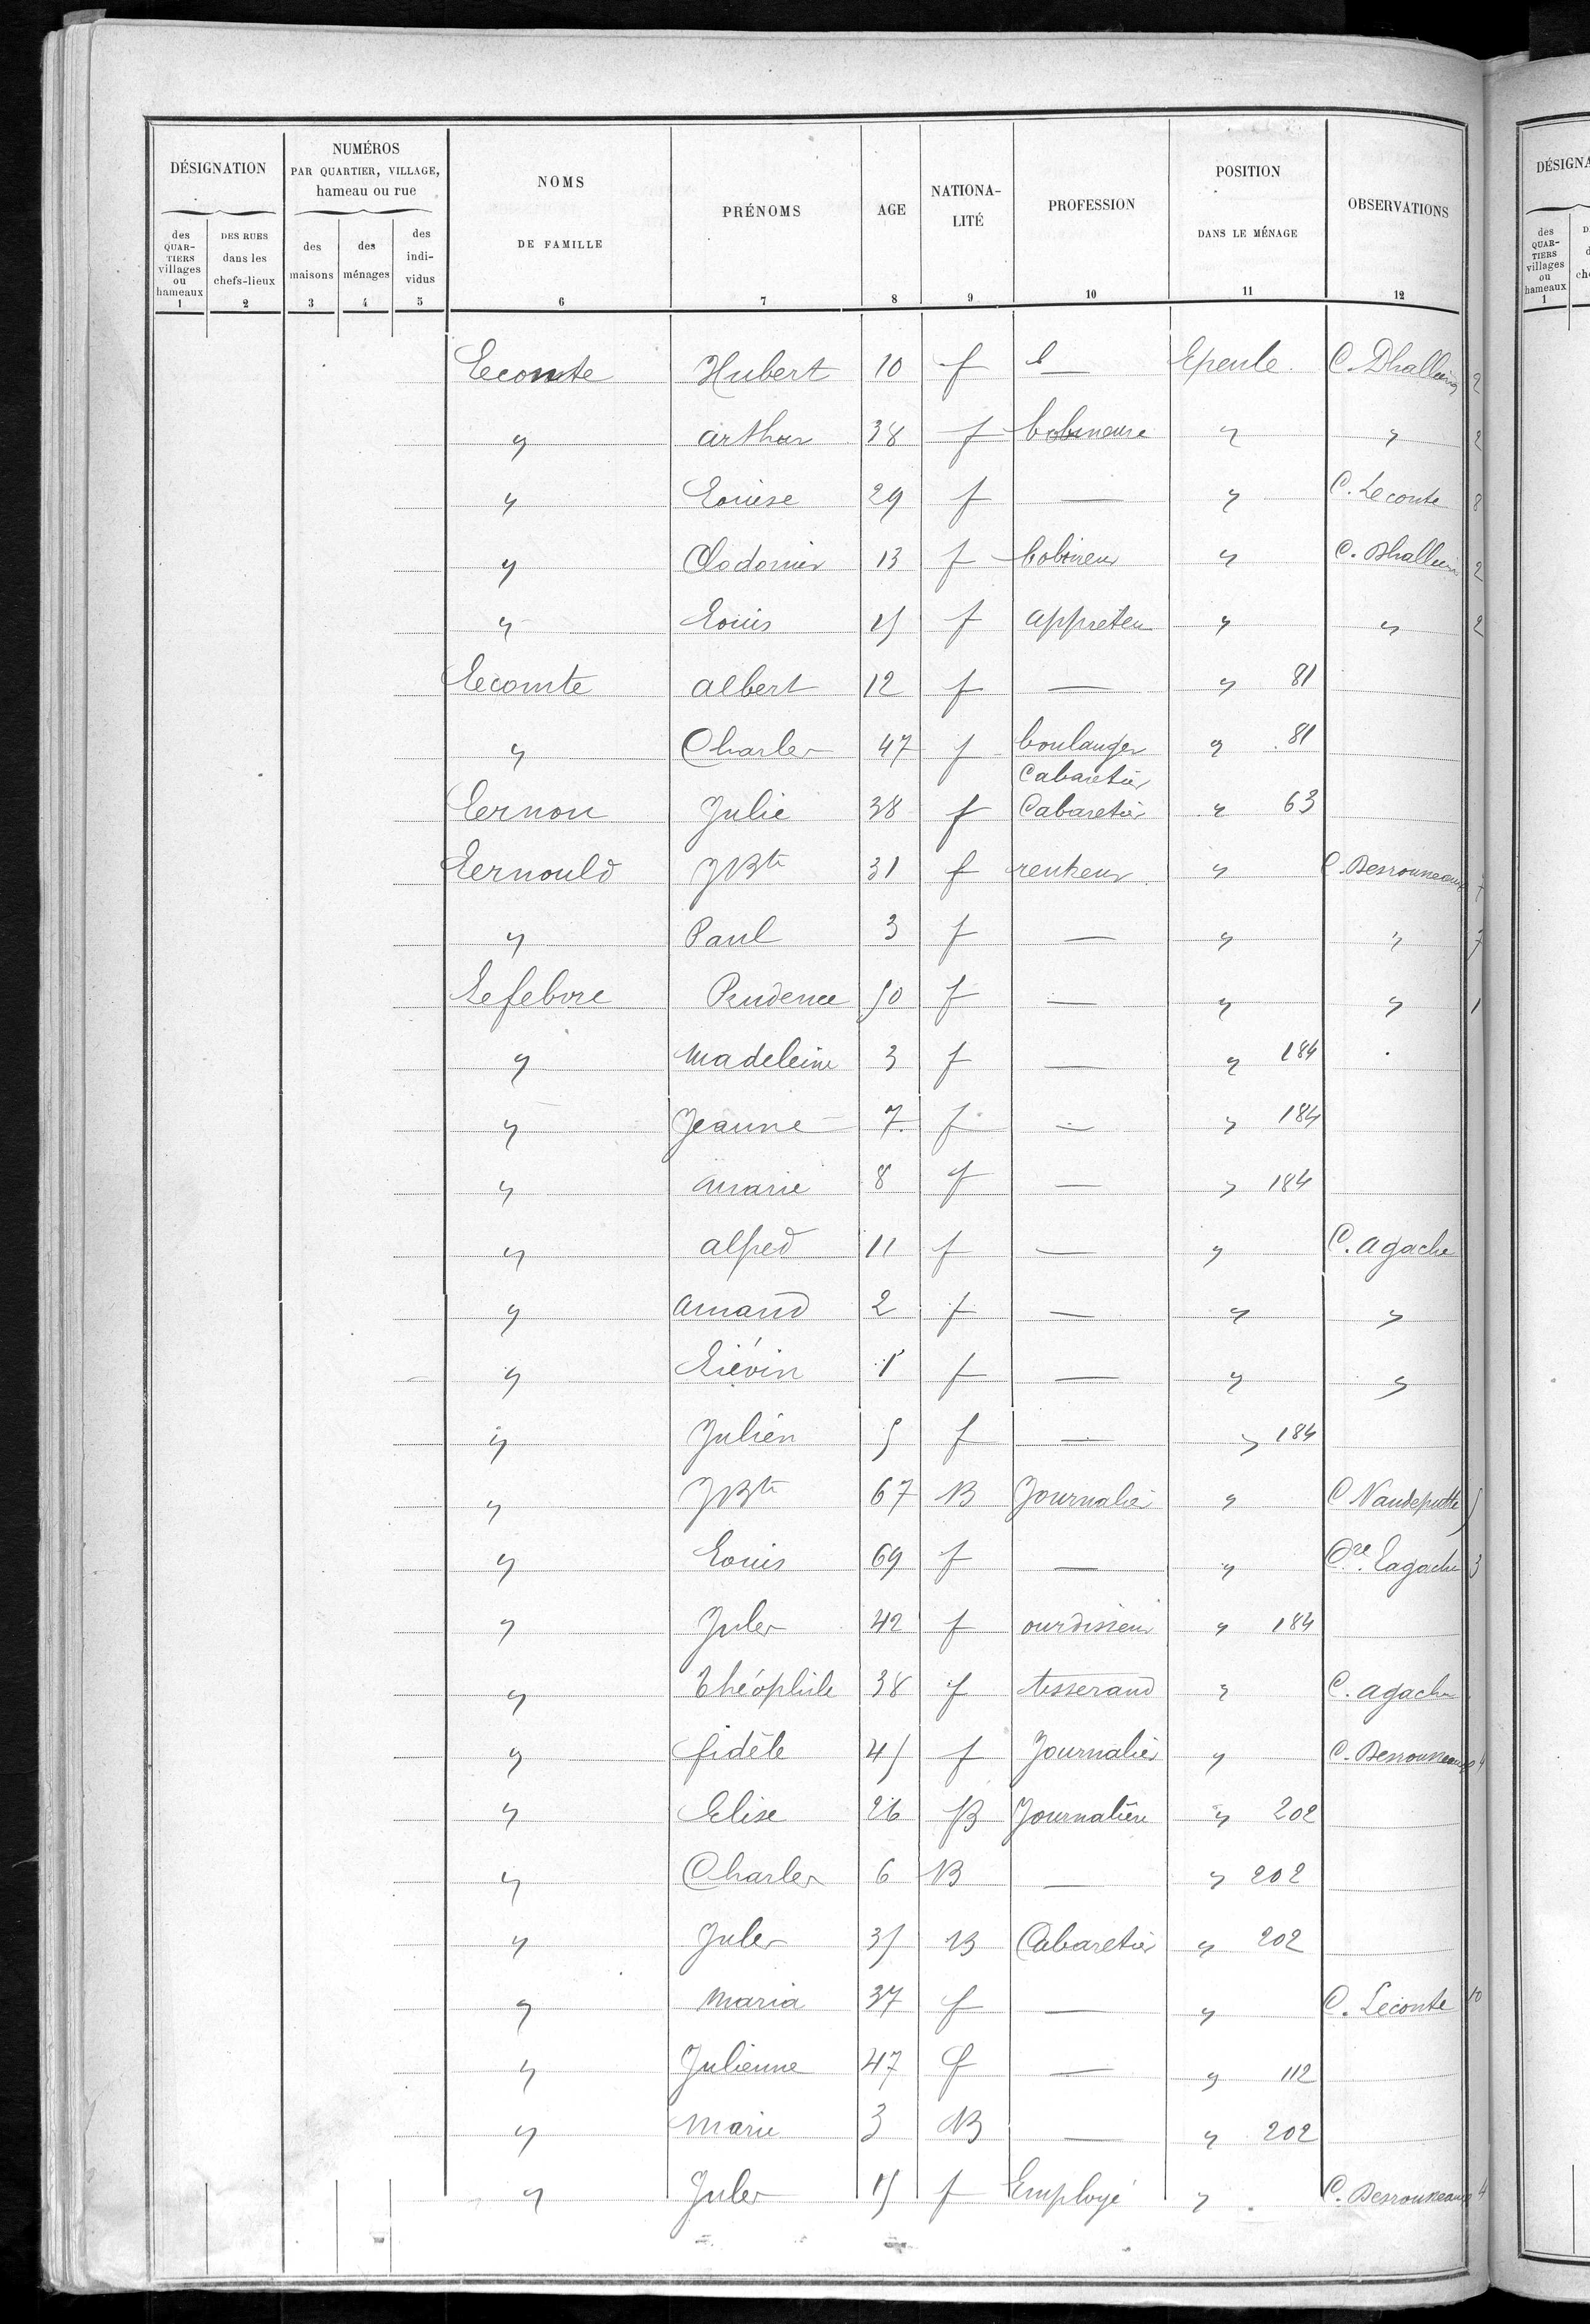 DÉSIGNATION
NUMÉROS
PAR QUARTIER, VILLAGE,
hameau ou rue
NOMS
DE FAMILLE
PRÉNOMS
AGE
NATIONA-
LITÉ
PROFESSION
POSITION
DANS LE MÉNAGE
OBSERVATIONS
des
QUAR-
TIERS
villages
ou
hameaux
DES RUES
dans les
chefs-lieux
des
maisons
des
ménages
des
indi-
vidus
1 2 3 4 5 6 7 8 9 10 11 12
Lecomte Hubert 10 f — Epeule C. Dhalluin 2
" arthur 38 f " " 2
" Louise 29 f — " C. Leconte 8
" Clodomir 13 f bobineur " C. Dhalluin 2
" Louis 15 f appreteur " " 2
Lecomte albert 12 f — " 81
" Charles 47 f boulanger " 81
Cabaretier
Lernon Julie 38 f Cabaretier " 63
Lernould JBte 31 f rentreur " C. Desrousseaux 7
" Paul 3 f — " " 7
Lefebvre Prudence 50 f — " " 1
" Madeleine 3 f — " 184
" Jeanne 7 f — " 184
" Marie 8 f — " 184
" alfred 11 f — " C. agache
" Amand 2 f — " "
" Liévin 1 f — " "
" Julien 5 f — " 184
" JBte 67 B Journalier " C Vandeputte 5
" Louis 69 f — " Lagache 3
" Jules 42 f ourdisseur " 184
" Théophile 38 f tisserand " C. agache
" fidèle 45 f Journalier " C. Desrousseaux 4
" Elise 26 B Journalière " 202
" Charles 6 B — " 202
" Jules 35 B Cabaretier " 202
" Maria 37 f — " C. Leconte 10
" Julienne 47 f — " 112
" Marie 3 B — " 202
" Jules 15 f Employé " C. Desrousseaux 4
DÉSIGNA
des
QUAR-
TIERS
villages
ou
hameaux
1